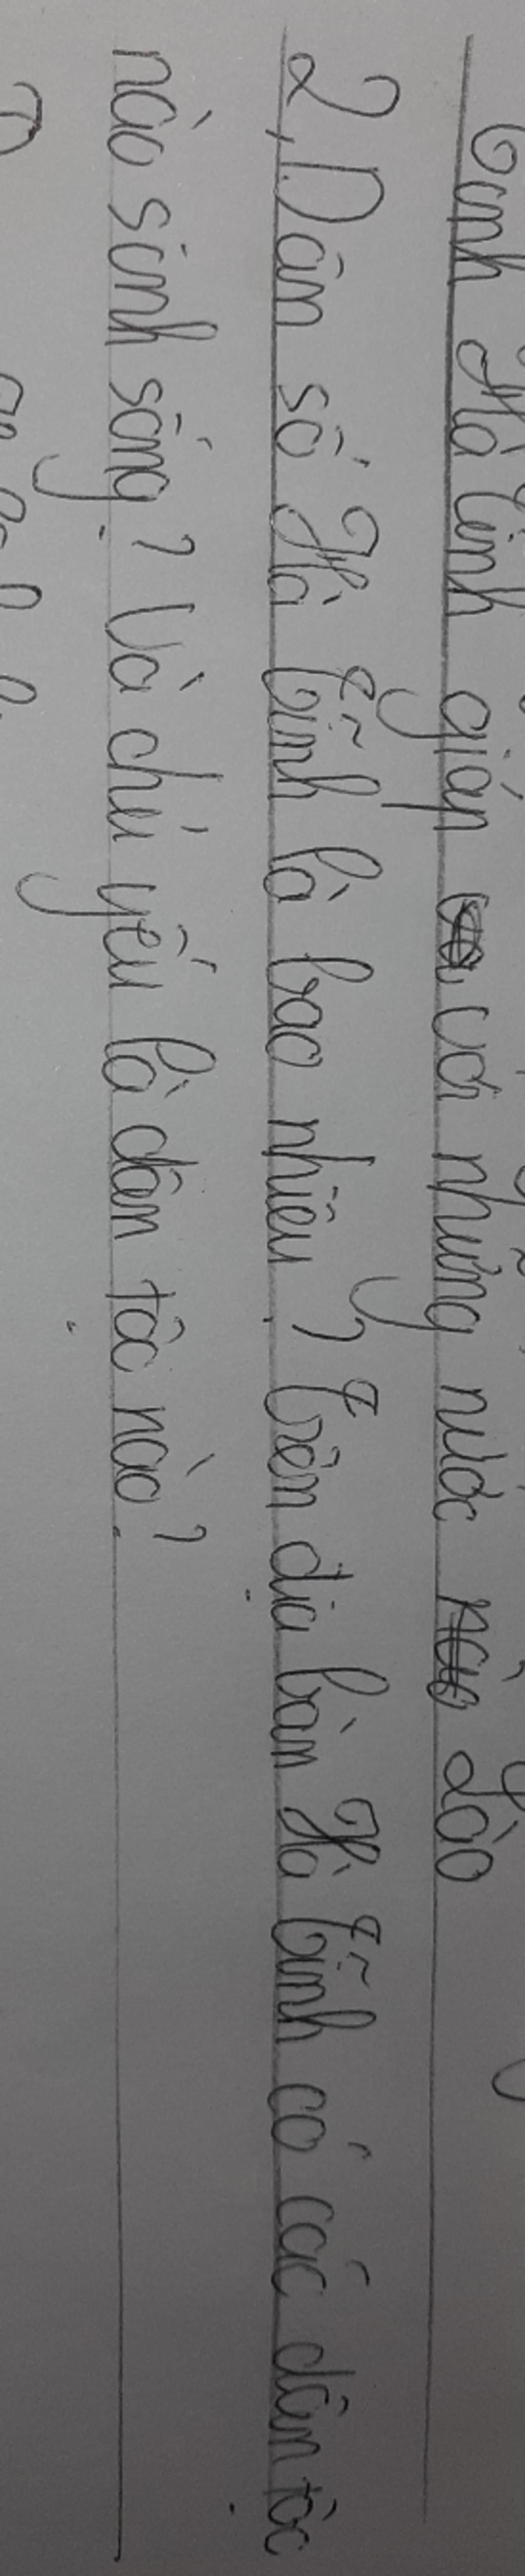 tỉnh Hà tĩnh giáp với những nước Lào
2, Dân số Hà tĩnh là bao nhiêu? trên địa bàn Hà tĩnh có các dân tộc
nào sinh sống? Và chủ yếu là dân tộc nào?